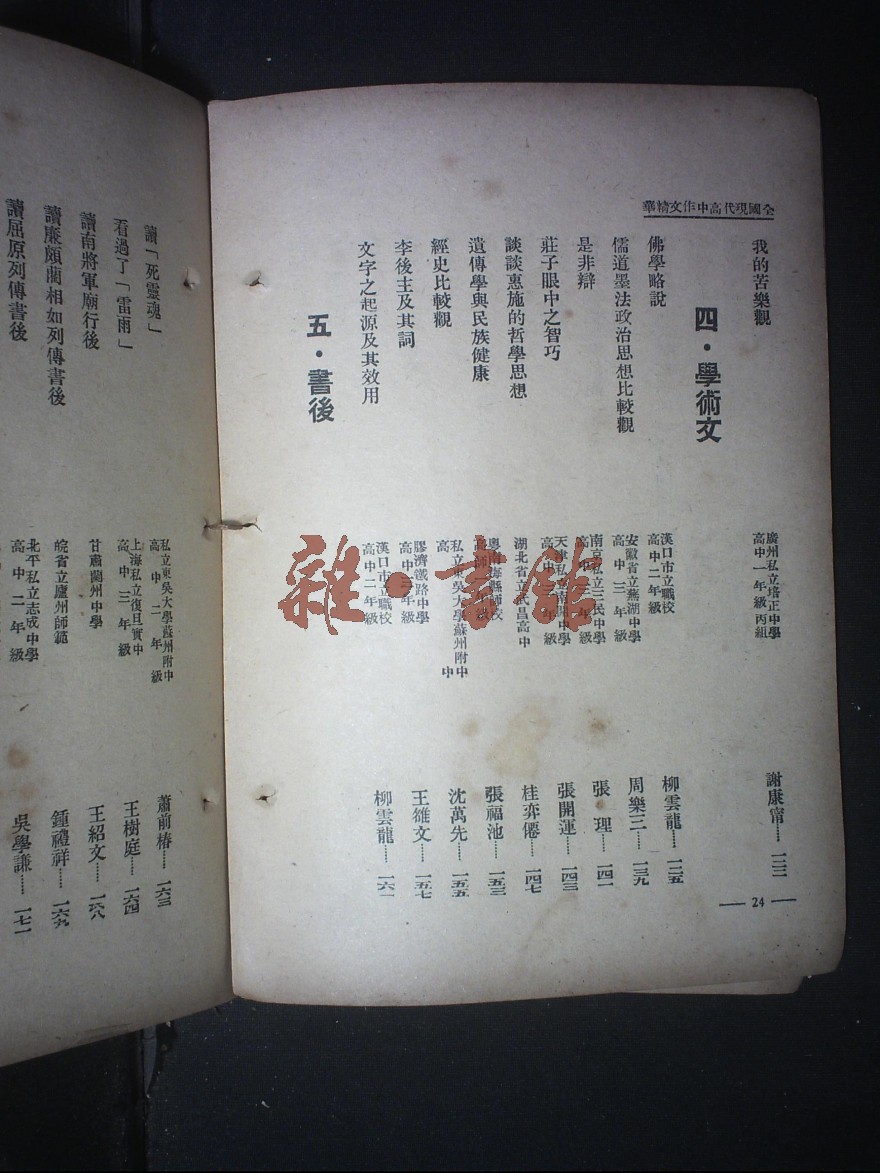 全國現代高中作文精華
我的苦樂觀 廣州私立培正中學 高中一年級丙組 謝康甯……一二三
四・學術文
佛學略說 漢口市立職校 高中二年級 柳雲龍……一二五
儒道墨法政治思想比較觀 安徽省立蕪湖中學 高中三年級 周樂三……一三九
是非辯 南京私立三民中學 張理……一四一
莊子眼中之智巧 天津私立南開中學 張開運……一四三
談談惠施的哲學思想 湖北省立武昌高中 桂弈僊……一四七
遺傳學與民族健康 粵南海縣師校 張福池……一五三
經史比較觀 私立東吳大學蘇州附中 高中 沈萬先……一五五
李後主及其詞 膠濟鐵路中學 高中三年級 王雄文……一五七
文字之起源及其效用 漢口市立職校 高中二年級 柳雲龍……一六一
五・書後
— 24 —
讀「死靈魂」 私立東吳大學蘇州附中 高中二年級 蕭前椿……一六三
看過了「雷雨」 上海私立復旦實中 高中三年級 王樹庭……一六四
讀南將軍廟行後 甘肅蘭州中學 王紹文……一六八
讀廉頗藺相如列傳書後 皖省立廬州師範 鍾禮祥……一六九
讀屈原列傳書後 北平私立志成中學 高中二年級 吳學謙……一七一
雜・書館